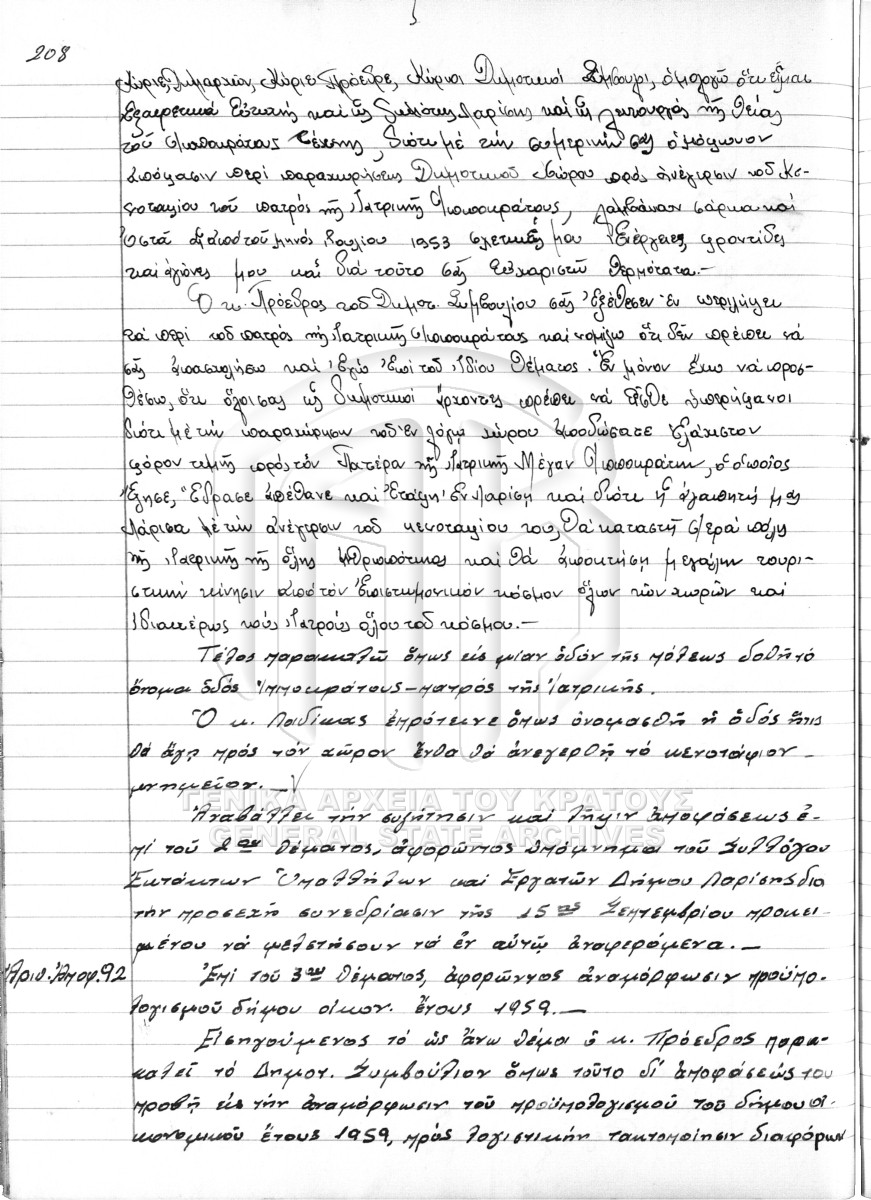 208
Κύριε Δήμαρχε, Κύριε Πρόεδρε, Κύριοι Δημοτικοί Σύμβουλοι, ὁμολογῶ ὅτι εἶμαι
ἐξαιρετικά εὐτυχής καί ὡς δημότης Λαρίσης καί ὡς λειτουργός τῆς θείας
τοῦ Ἱπποκράτους τέχνης, διότι μέ τήν σημερινήν σας ὁμόφωνον
ἀπόφασιν περί παραχωρήσεως Δημοτικοῦ χώρου πρός ἀνέγερσιν τοῦ Κε-
νοταφίου τοῦ πατρός τῆς Ἰατρικῆς Ἱπποκράτους, λαμβάνουν σάρκα καί
ὀστᾶ αἱ ἀπό τοῦ μηνός Ἰουλίου 1953 σχετικές μου ἐνέργειες, φροντίδες
καί ἀγῶνες μου καί διά τοῦτο σᾶς εὐχαριστῶ θερμότατα.—
Ὁ κ. Πρόεδρος τοῦ Δημοτ. Συμβουλίου σᾶς ἐξέθεσεν ἐν περιλήψει
τά περί τοῦ πατρός τῆς Ἰατρικῆς Ἱπποκράτους καί νομίζω ὅτι δέν πρέπει νά
σᾶς ἀπασχολήσω καί ἐγώ ἐπί τοῦ ἰδίου θέματος. Ἕν μόνον ἔχω νά προσ-
θέσω, ὅτι ὅλοι σας ὡς δημοτικοί ἄρχοντες πρέπει νά εἶσθε ὑπερήφανοι
διότι μέ τήν παραχώρησιν τοῦ ἐν λόγῳ χώρου ἀποδώσατε ἐλάχιστον
φόρον τιμῆς πρός τόν Πατέρα τῆς Ἰατρικῆς Μέγαν Ἱπποκράτην, ὁ ὁποῖος
ἔζησε, ἔδρασε ἀπέθανε καί ἐτάφη ἐν Λαρίσῃ καί διότι ἡ ἀγαπητή μας
Λάρισα μέ τήν ἀνέγερσιν τοῦ κενοταφίου του, θά καταστῇ ἱερά πόλη
τῆς Ἰατρικῆς τῆς ὅλης ἀνθρωπότητος καί θά ἀποκτήσῃ μεγάλην τουρι-
στικήν κίνησιν ἀπό τόν ἐπιστημονικόν κόσμον ὅλων τῶν χωρῶν καί
ἰδιαιτέρως τούς Ἰατρούς ὅλου τοῦ κόσμου.—
Τέλος παρακαλῶ ὅπως εἰς μίαν ὁδόν τῆς πόλεως δοθῇ τό
ὄνομα ὁδός Ἱπποκράτους-πατρός τῆς Ἰατρικῆς.
Ὁ κ. Λαδίκας ἐπρότεινε ὅπως ὀνομασθῇ ἡ ὁδός ἥτις
θά ἄγῃ πρός τόν χῶρον ἔνθα θά ἀνεγερθῇ τό κενοτάφιον-
μνημεῖον.—
Ἀναβάλλει τήν συζήτησιν καί λῆψιν ἀποφάσεως ἐ-
πί τοῦ 2ου θέματος, ἀφορῶντος ὑπόμνημα τοῦ Συλλόγου
Ἐκτάκτων Ὑπαλλήλων καί Ἐργατῶν Δήμου Λαρίσης διά
τήν προσεχῆ συνεδρίασιν τῆς 15ης Σεπτεμβρίου προκει-
μένου νά μελετήσουν τά ἐν αὐτῷ ἀναφερόμενα.—
Ἀριθ. Ἀποφ. 92
Ἐπί τοῦ 3ου θέματος, ἀφορῶντος ἀναμόρφωσιν προϋπο-
λογισμοῦ δήμου οἰκον. ἔτους 1959.—
Εἰσηγούμενος τό ὡς ἄνω θέμα ὁ κ. Πρόεδρος παρα-
καλεῖ τό Δημοτ. Συμβούλιον ὅπως τοῦτο δι' ἀποφάσεώς του
προβῇ εἰς τήν ἀναμόρφωσιν τοῦ προϋπολογισμοῦ τοῦ δήμου οἰ-
κονομικοῦ ἔτους 1959, πρός λογιστικήν τακτοποίησιν διαφόρων
ΓΕΝΙΚΑ ΑΡΧΕΙΑ ΤΟΥ ΚΡΑΤΟΥΣ
GENERAL STATE ARCHIVES